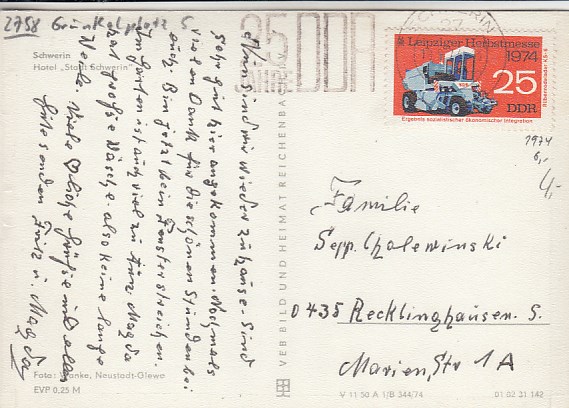 2758 Grünkelplatz 5
Schwerin
Hotel „Stadt Schwerin“
Nun sind wir wieder zuhause. Sind
sehr gut hier angekommen. Nochmals
vielen Dank für die schönen Stunden bei
Euch. Bin jetzt beim Fensterstreichen.
Im Garten ist auch viel zu tun. Magda
hat große Wäsche also keine lange
Weile. Viele liebe Grüße und alles
Gute senden Fritz u. Magda
Foto: Wanke, Neustadt-Glewe
EVP 0.25 M
VEB BILD UND HEIMAT REICHENBACH
25 JAHRE DDR
SCHWERIN
Leipziger Herbstmesse
1974
25
DDR
Ergebnis sozialistischer ökonomischer Integration
Rübenrodelader KS-6
1974
6,-
4,-
Familie
Sepp. Cholewinski
0435 Recklinghausen. S.
Marien, Str 1A
V 11 50 A 1/B 344/74
01 02 31 142